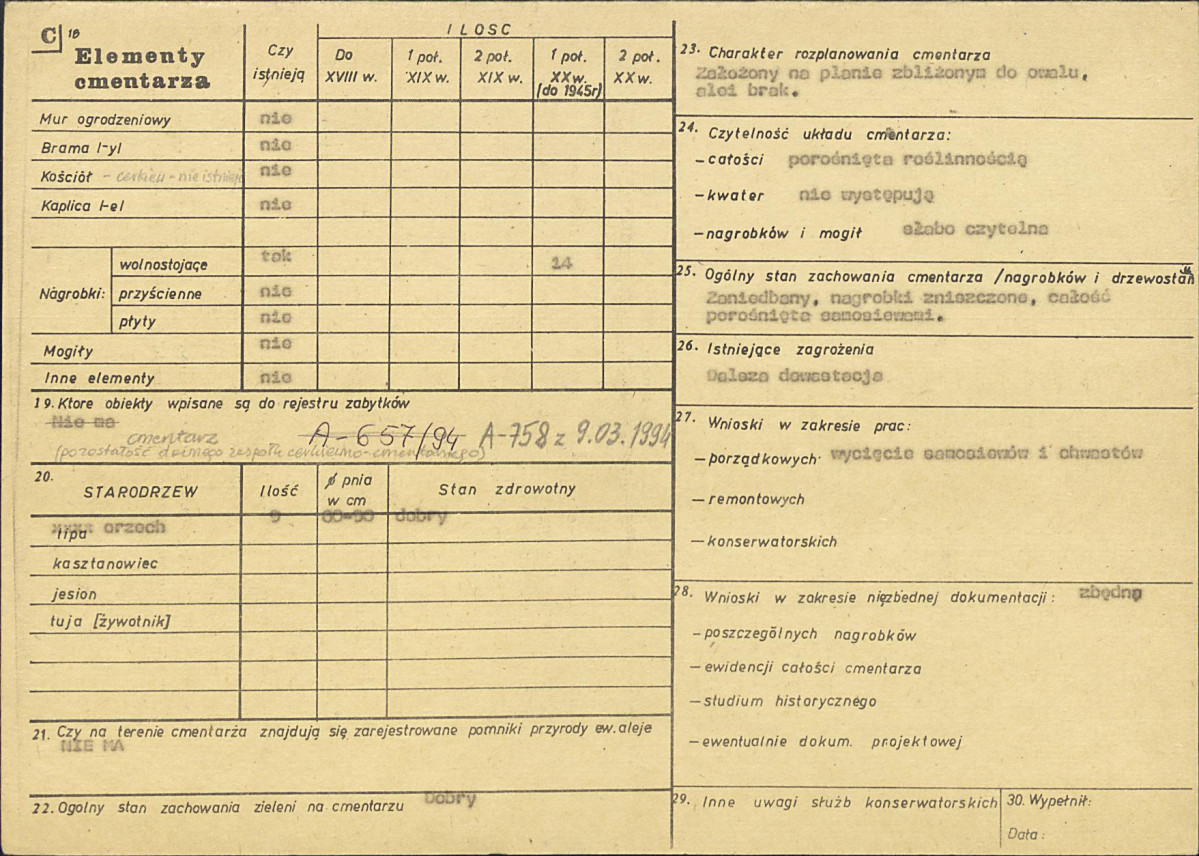 C 18
Elementy
cmentarza
Czy
istnieją
ILOSC
Do
XVIII w.
1 poł.
XIX w.
2 poł.
XIX w.
1 poł.
XX w.
(do 1945r)
2 poł.
XX w.
Mur ogrodzeniowy nie
Brama /-y/ nie
Kościół - cerkiew - nie istnieje nie
Kaplica /-e/ nie
Nagrobki: wolnostojące tak 14
przyścienne nie
płyty nie
Mogiły nie
Inne elementy nie
19. Ktore obiekty wpisane są do rejestru zabytków
Nie ma
cmentarz A-657/94 A-758 z 9.03.1994
(pozostałość dawnego zespołu cerkiewno-cmentarnego)
20. STARODRZEW Ilość ø pnia
w cm Stan zdrowotny
xxxx orzech 9 60-90 dobry
lipa
kasztanowiec
jesion
tuja [żywotnik]
21. Czy na terenie cmentarza znajdują się zarejestrowane pomniki przyrody ew. aleje
NIE MA
22. Ogolny stan zachowania zieleni na cmentarzu Dobry
23. Charakter rozplanowania cmentarza
Założony na planie zbliżonym do owalu,
alei brak.
24. Czytelność układu cmentarza:
- całości porośnięta roślinnością
- kwater nie występują
- nagrobków i mogił słabo czytelna
25. Ogólny stan zachowania cmentarza /nagrobków i drzewostanu
Zaniedbany, nagrobki zniszczone, całość
porośnięta samosiewami.
26. Istniejące zagrożenia
Dalsza dewastacja
27. Wnioski w zakresie prac:
- porządkowych wycięcie samosiewów i chwastów
- remontowych
- konserwatorskich
28. Wnioski w zakresie niezbednej dokumentacji: zbędna
- poszczególnych nagrobków
- ewidencji całości cmentarza
- studium historycznego
- ewentualnie dokum. projektowej
29. Inne uwagi służb konserwatorskich
30. Wypełnił:
Data: